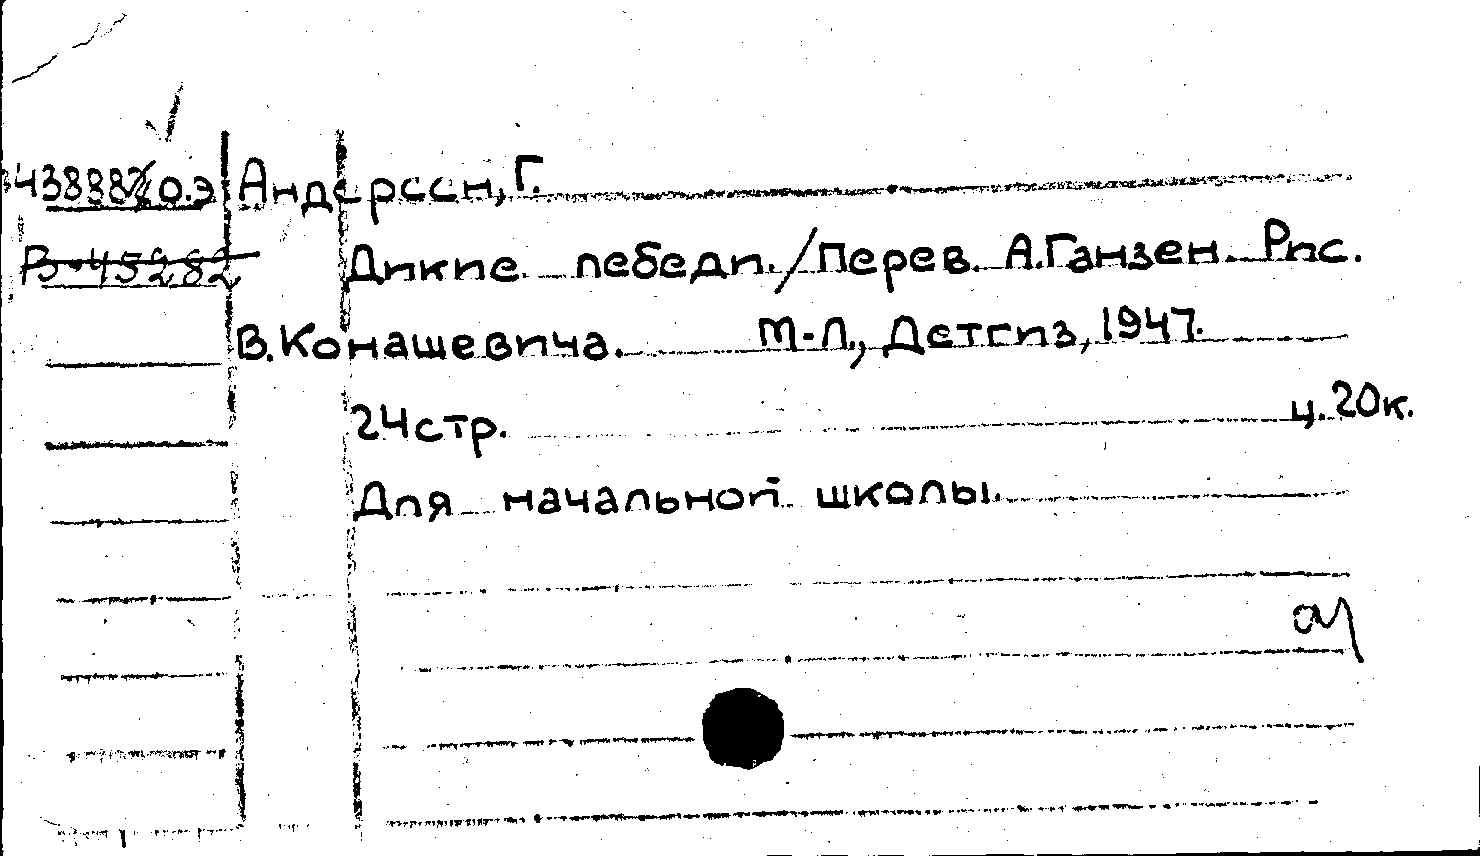 о.э Андерсен, Г.
В-45282 Дикие лебеди./Перев. А.Ганзен. Рис.
В.Конашевича. М-Л., Детгиз, 1947.
24стр. ц.20к.
Для начальной школы.